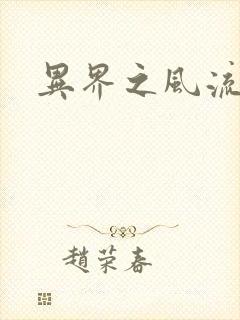 異界之風流
趙荣春